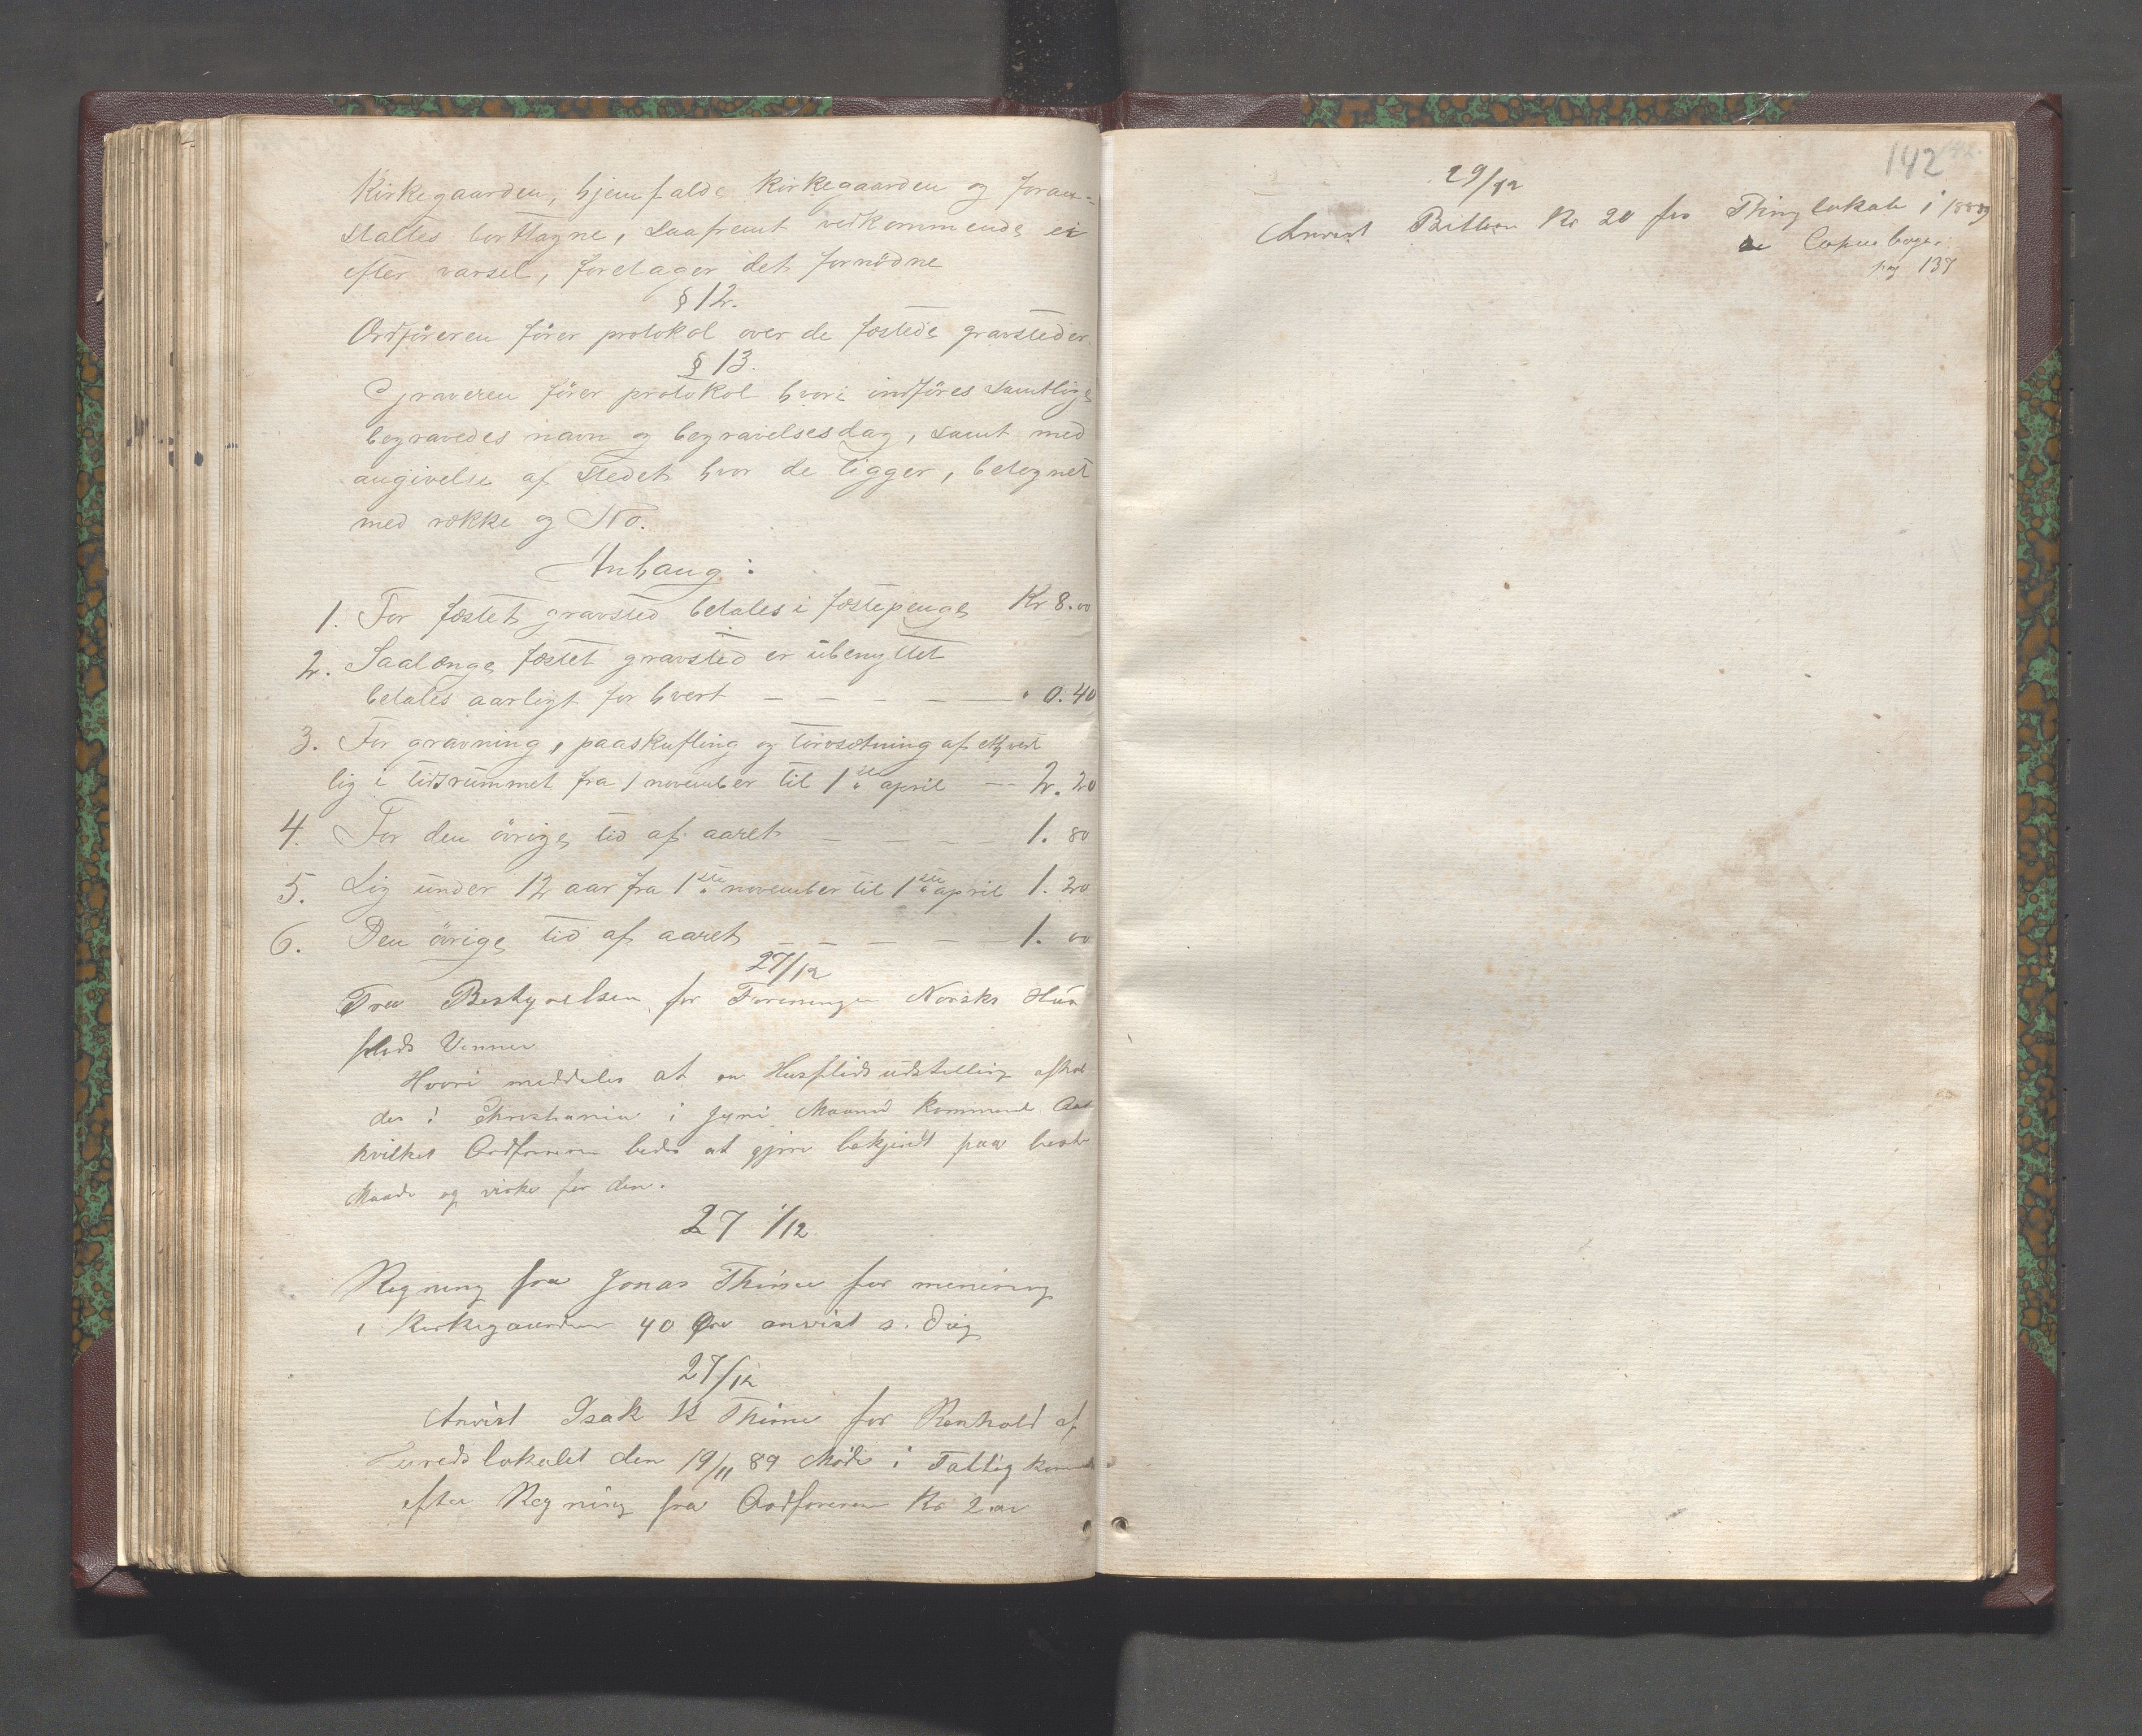 Kirkegaarden, hjemfalde Kirkegaarden og foran-
staltes borttagne, saafremt vedkommende ei
efter varsel, foretager det fornødne
§ 12.
Ordføreren fører protokol over de fæstede gravsteder.
§ 13.
Graveren fører protokol hvori indføres samtlige
begravedes navn og begravelsesdag, samt med
angivelse af stedet hvor de ligger, betegnet
med række og No.
Anhang:
1. For fæstet gravsted betales i fæstepenge Kr 8.00
2. Saalænge fæstet gravsted er ubenyttet
betales aarligt for hvert — — — — " 0.40
3. For gravning, paaskufling og torvsætning af ethvert
lig i tidsrummet fra 1 november til 1ste april — 2.20
4. For den øvrige tid af aaret — — — — 1.80
5. Lig under 12 aar fra 1ste november til 1ste april 1.20
6. Den øvrige tid af aaret — — — — — 1.00
27/12
Fra Bestyrelsen for Foreningen Norsks Hus
flids Venner
Hvori meddeles at en Husflidsudstilling afhol
des i Christiania i Juni Maaned kommende Aar
hvilket Ordføreren bedes at gjøre bekjendt paa beste
Maade og virke for den.
27 1/12
Regning fra Jonas Thime for
i Kirkegaarden 40 Øre anvist s. Dag
27/12
Anvist Isak K Thime for Renhold af
Heredslokalet den 19/11 89 Møde i Fattigkom
efter Regning fra Ordføreren Kr 2.00
142
29/12
Anvist Kr 20 for Thinglokale i 1889
se Copiebogen
pag 137